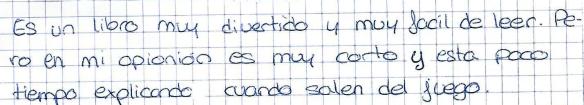 Es un libro muy divertido y muy facil de leer. Pe-
ro en mi opionion es muy corto y esta poco
tiempo explicando cuando salen del juego.